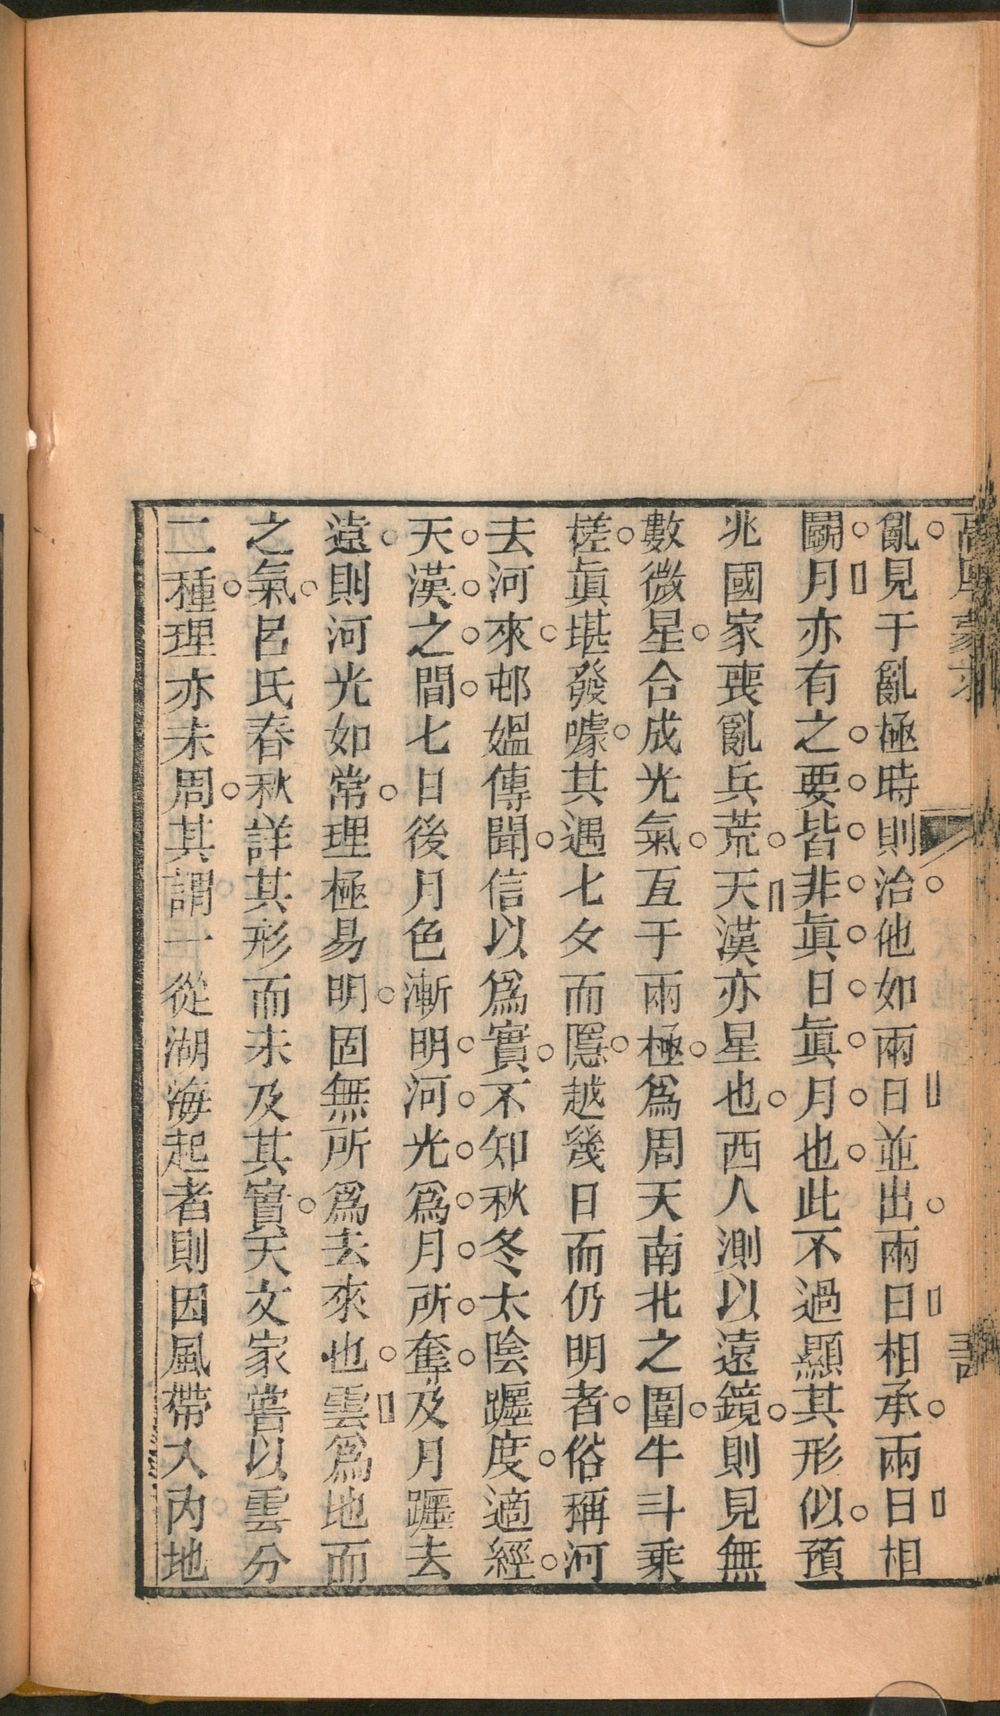 亂見于亂極時則治他如兩日並出兩日相承兩日相
鬭月亦有之要皆非眞日眞月也此不過顯其形似預
兆國家喪亂兵荒天漢亦星也西人測以遠鏡則見無
數微星合成光氣亙于兩極爲周天南北之圍牛斗乘
槎眞堪發噱其遇七夕而隱越幾日而仍明者俗稱河
去河來邨媼傳聞信以爲實不知秋冬太陰躔度適經
天漢之間七日後月色漸明河光爲月所奪及月躔去
遠則河光如常理極易明固無所爲去來也雲爲地而
之氣呂氏春秋詳其形而未及其實天文家嘗以雲分
二種理亦未周其謂一從湖海起者則因風帶入內地